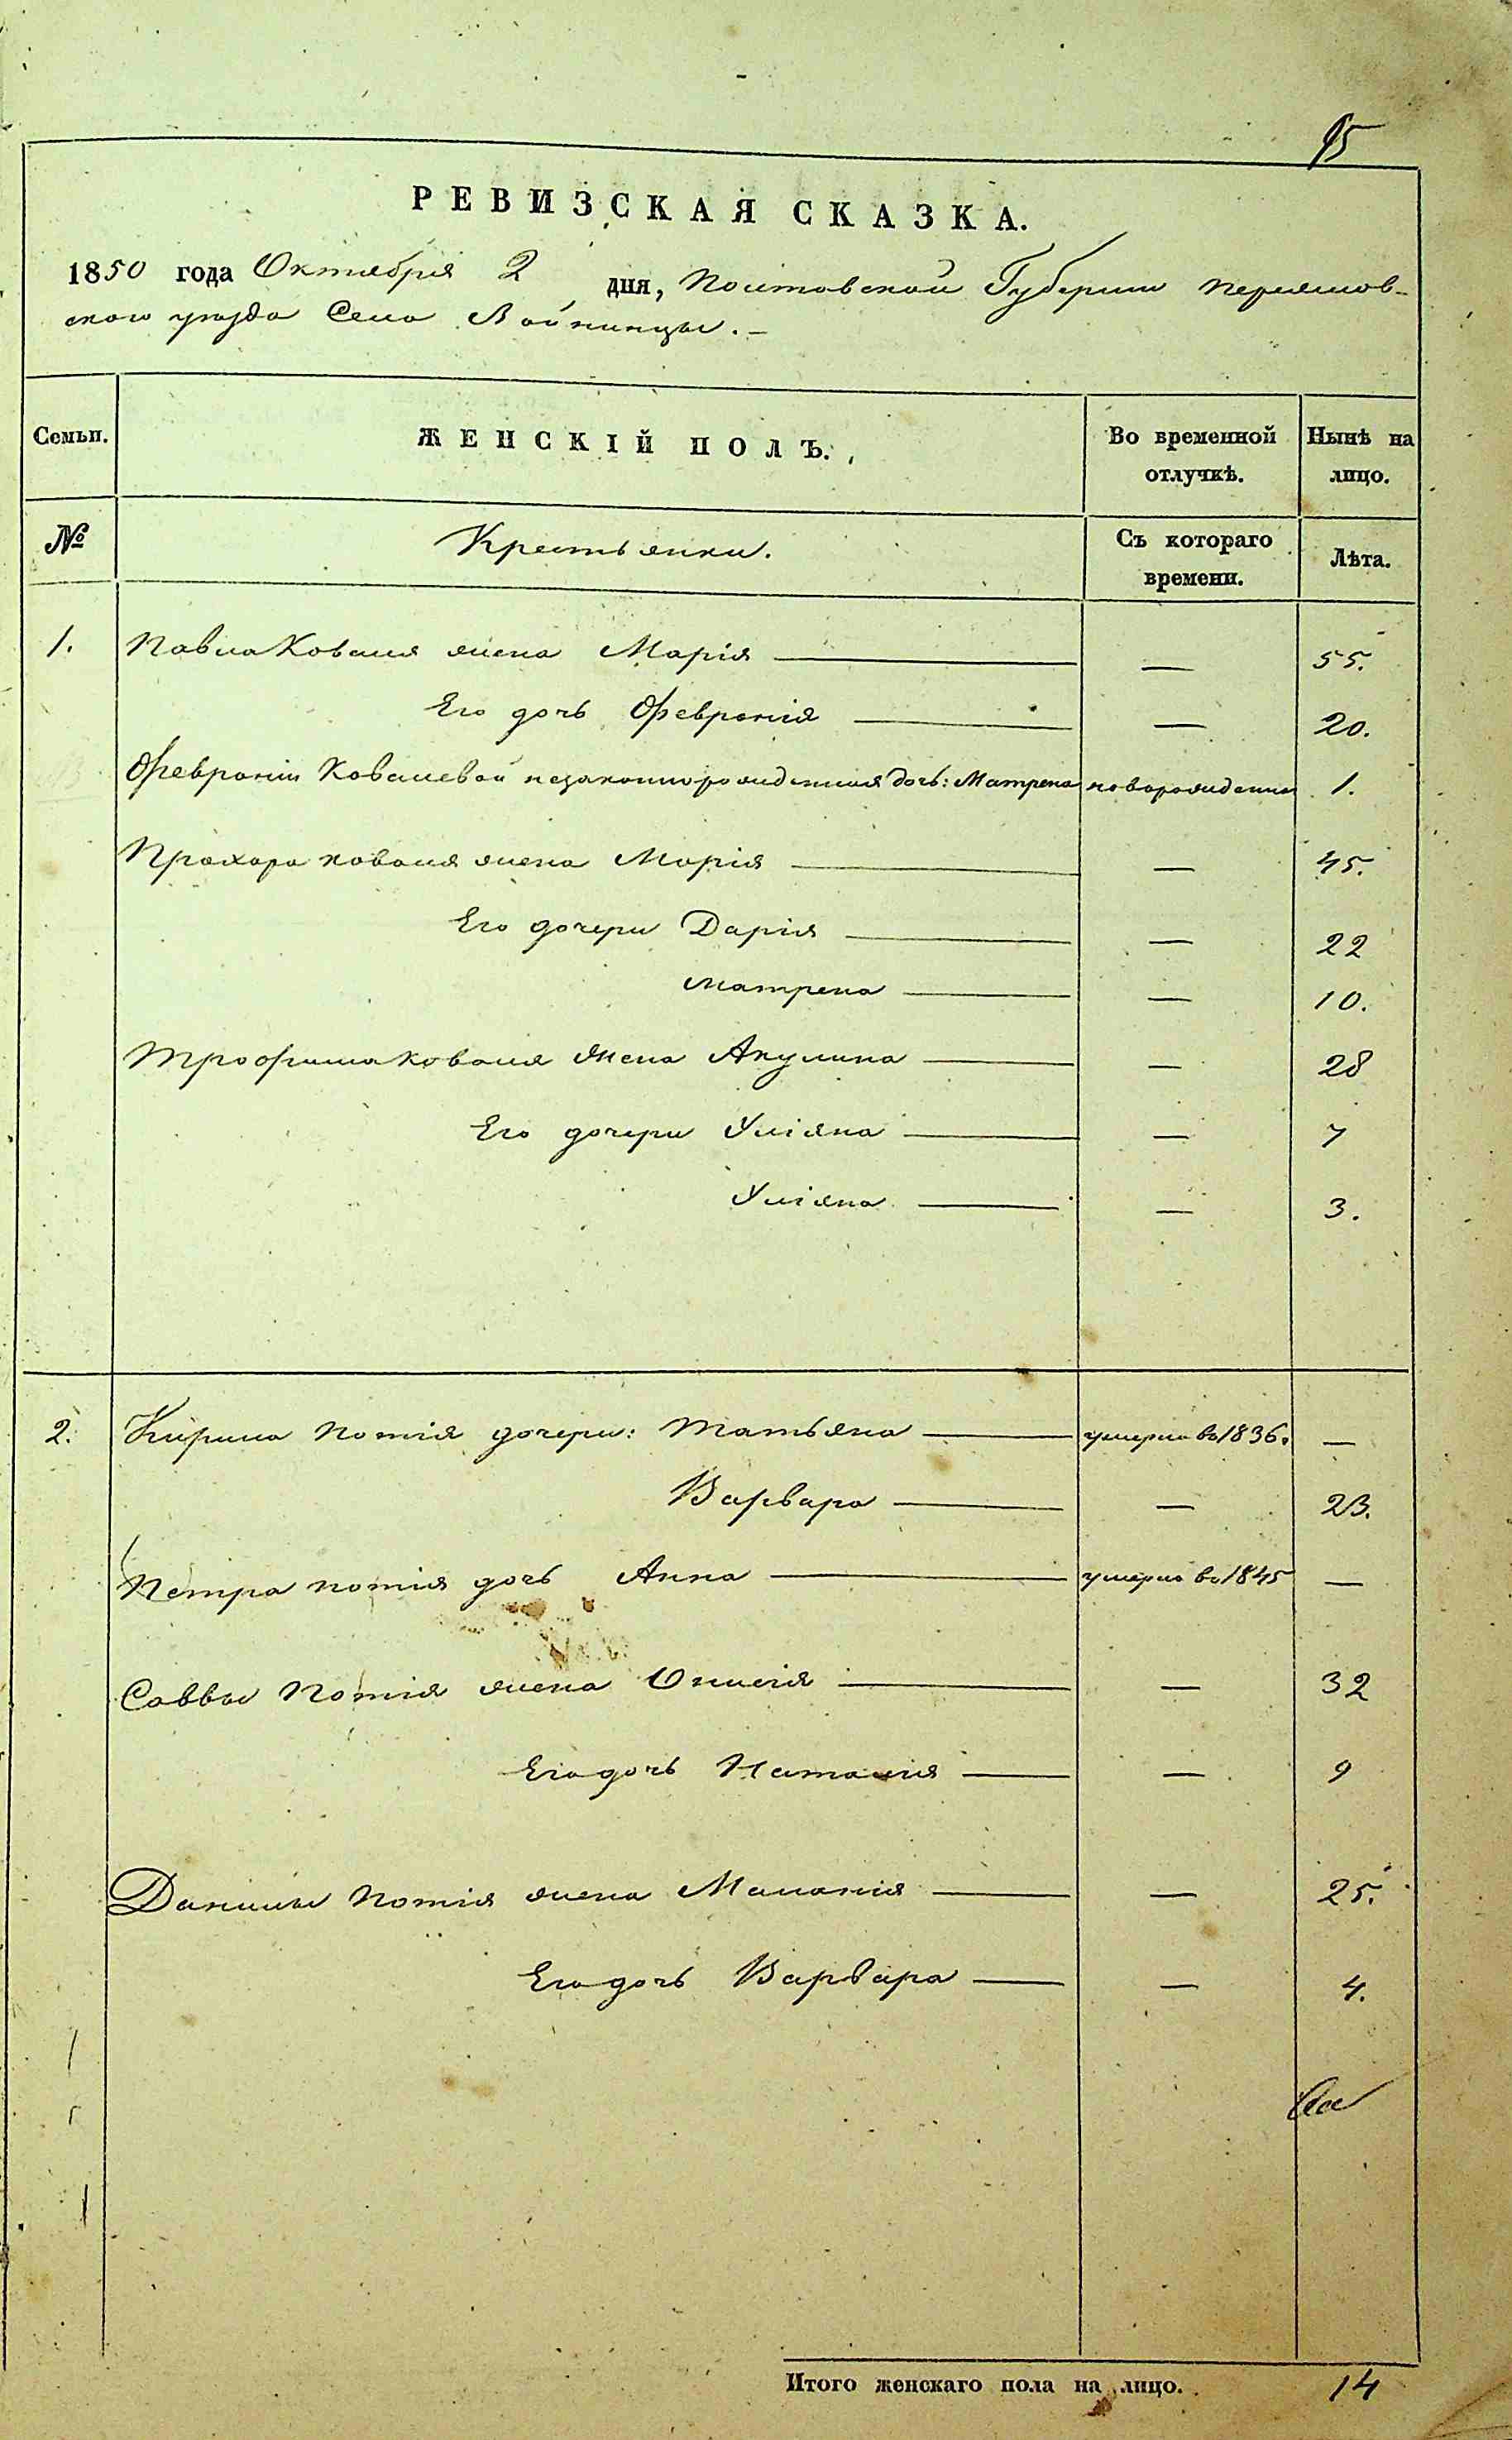 95
РЕВИЗСКАЯ СКАЗКА.
1850 года Октября 2 дня, Полтавской Губернии Пирятинов-
ского уезда Села Войнинцы.
Семьи. ЖЕНСКІЙ ПОЛЪ. Во временной отлучкѣ. Нынѣ на лицо.
№ Крестьянки. Съ котораго времени. Лѣта.
1. Павла Коваля жена Марія — 55.
Его дочь Февронія — 20.
Февроніи Ковалевой незаконнорожденная дочь: Матрена новорожденна 1.
Прохора Коваля жена Марія — 45.
Его дочери Дарія — 22
Матрена — 10.
Трофима Коваля жена Акулина — 28
Его дочери Уліяна — 7
Уліяна — 3.
2. Кирила Потія дочери: Татьяна умерла въ 1836. —
Варвара — 23.
Петра Потія дочь Анна умерла въ 1845 —
Саввы Потія жена Онисія — 32
Его дочь Наталія — 9
Данилы Потія жена Маланія — 25.
Его дочь Варвара — 4.
Итого женскаго пола на лицо. 14